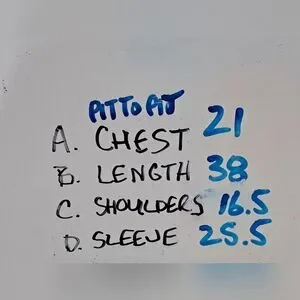 PIT TO PIT
A. CHEST 21
B. LENGTH 38
C. SHOULDERS 16.5
D. SLEEVE 25.5